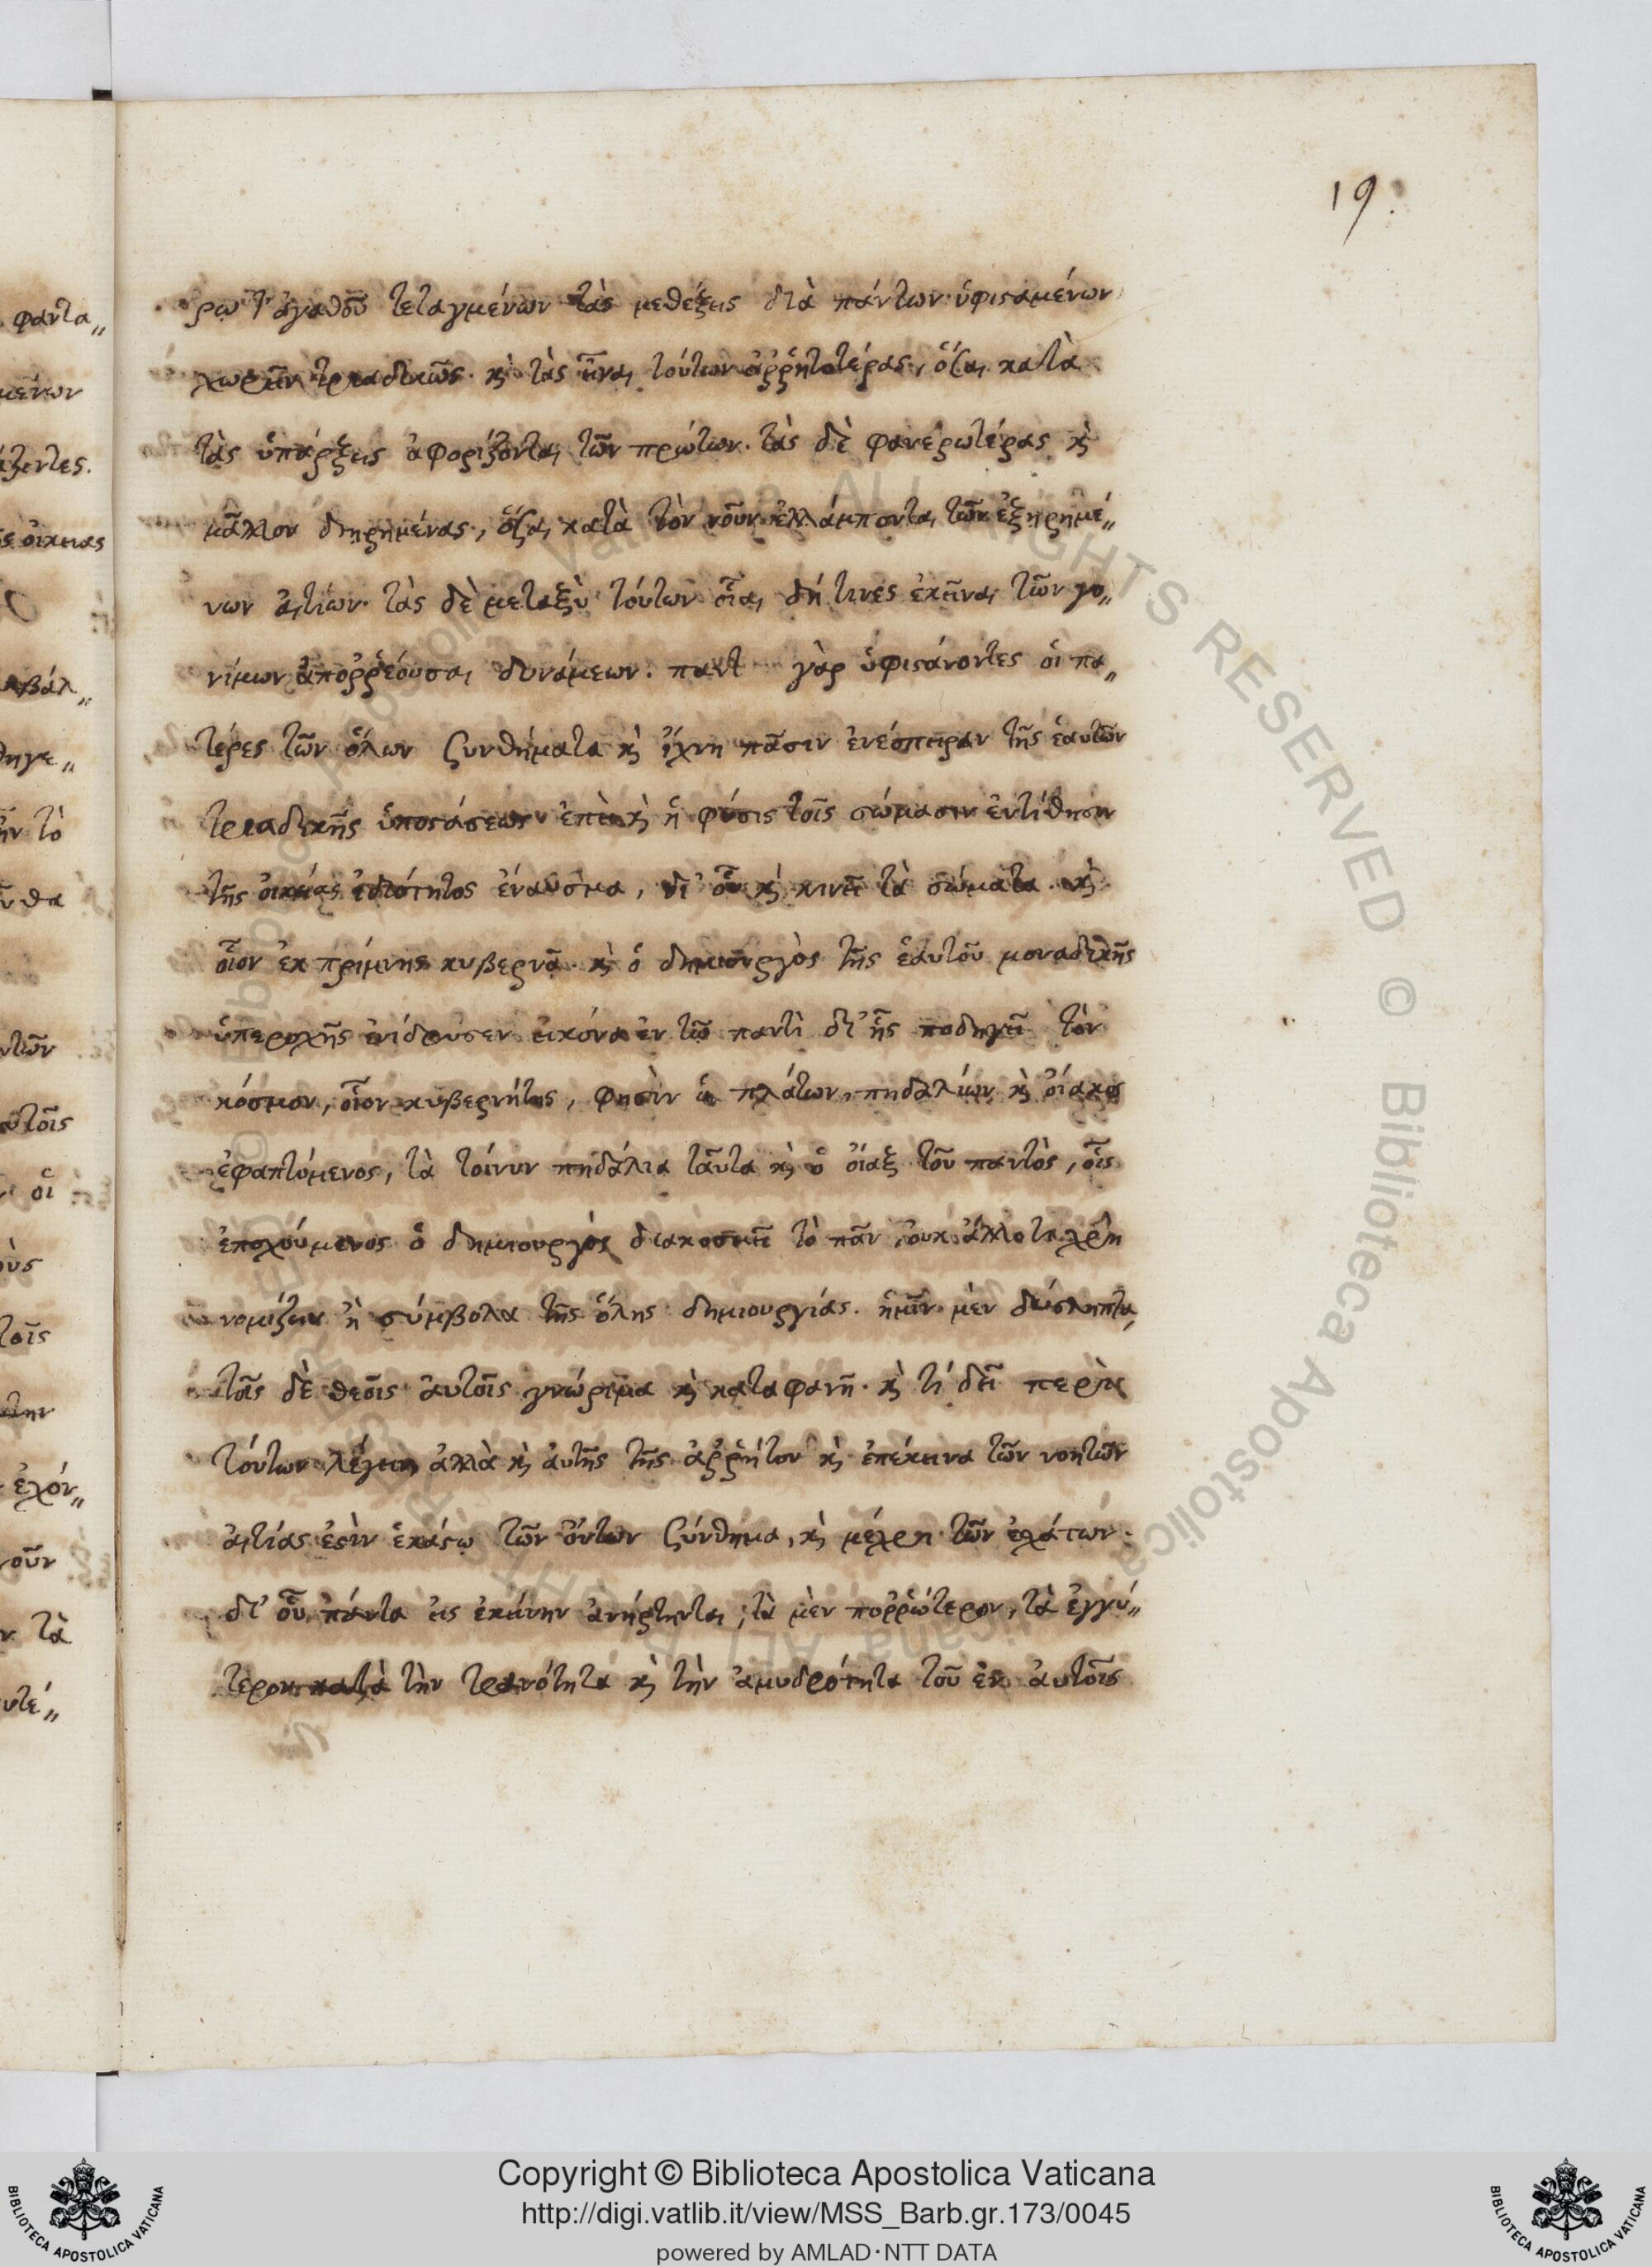 19.
ρω τἀγαθοῦ τεταγμένων τὰς μεθέξεις διὰ πάντων ὑφισαμένων
χωρεῖν τριαδικῶς. κὶ τὰς εἶναι τούτων ἀῤῥητοτέρας, ὅσαι κατὰ
τὰς ὑπάρξεις ἀφορίζονται τῶν πρώτων. τὰς δὲ φανερωτέρας κὶ
μᾶλλον διῃρημένας, ὅσαι κατὰ τὸν νοῦν ἐλλάμπονται τῶν ἐξῃρημέ„
νων αἰτίων. τὰς δὲ μεταξὺ τούτων οἷαι δή τινες ἐκεῖναι τῶν γο„
νίμων ἀποῤῥέουσαι δυνάμεων. παντ γὰρ ὑφισάνοντες οἱ πα„
τέρες τῶν ὅλων ξυνθήματα κὶ ἴχνη πᾶσιν ἐνέσπειραν τῆς ἑαυτῶν
τριαδικῆς ὑποσάσεως ἐπεὶ κὶ ἡ φύσις τοῖς σώμασιν ἐντίθησιν
τῆς οἰκείας ἰδιότητος ἔναυσμα, δι' οὗ κὶ κινεῖ τὰ σώματα. κὶ
οἷον ἐκ πρίμνης κυβερνᾷ. κὶ ὁ δημιουργὸς τῆς ἑαυτοῦ μοναδικῆς
ὑπεροχῆς ἐνίδρυσεν εἰκόνα ἐν τῷ παντὶ δι' ἧς ποδηγεῖ τὸν
κόσμον, οἷον κυβερνήτης, φησὶν ὁ πλάτων, πηδαλίων κὶ οἴακος
ἐφαπτόμενος, τὰ τοίνυν πηδάλια ταῦτα κὶ ὁ οἴαξ τοῦ παντὸς, οἷς
ἐποχούμενος ὁ δημιουργὸς διακοσμεῖ τὸ πᾶν, οὐκ ἄλλο τι χρὴ
νομίζειν ἢ σύμβολα τῆς ὅλης δημιουργίας. ἡμῖν μὲν δύσληπτα,
τοῖς δὲ θεοῖς αὐτοῖς γνώριμα κὶ καταφανῆ. κὶ τί δεῖ περὶ
τούτων λέγειν ἀλλὰ κὶ αὐτῆς τῆς ἀῤῥήτου κὶ ἐπέκεινα τῶν νοητῶν
αἰτίας ἐσὶν ἑκάσῳ τῶν ὄντων ξύνθημα, κὶ μέχρι τῶν ἐχάτων.
δι' οὗ πάντα εἰς ἐκείνην ἀνήρτηται, τὰ μὲν ποῤῥώτερον, τὰ ἐγγύ„
τερον κατὰ τὴν τρανότητα κὶ τὴν ἀμυδρότητα τοῦ ἐν αὐτοῖς
φαντα„
μένων
βάλ„
ὴν τὸ
οἱ
τοῖς
ἐχόν„
οῦν
τὰ
Copyright © Biblioteca Apostolica Vaticana
http://digi.vatlib.it/view/MSS_Barb.gr.173/0045
powered by AMLAD·NTT DATA
BIBLIOTECA APOSTOLICA VATICANA
BIBLIOTECA APOSTOLICA VATICANA